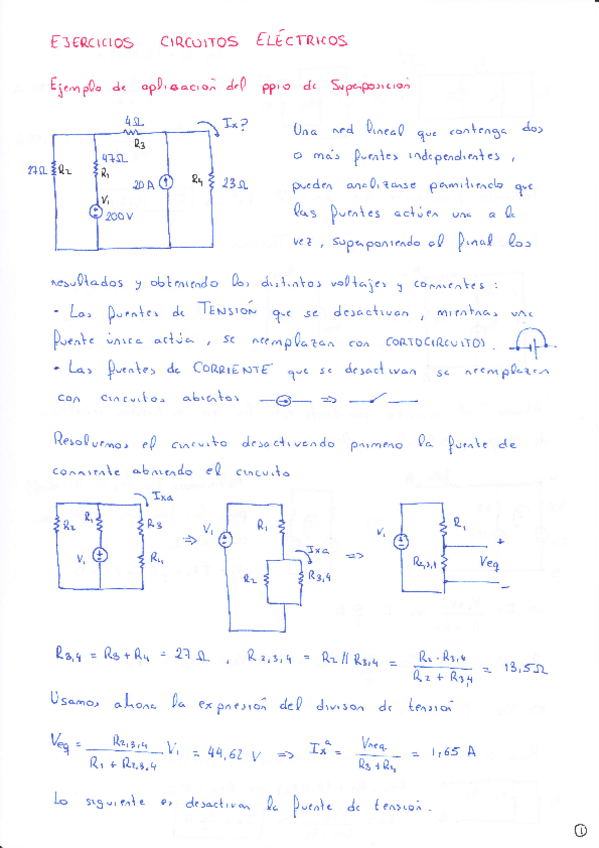 EJERCICIOS CIRCUITOS ELÉCTRICOS
Ejemplo de aplicación del ppio de Superposición
4Ω
Ix?
R3
27Ω
R2
47Ω
R1
20 A
R4
23Ω
V1
200 V
Una red lineal que contenga dos
o más fuentes independientes,
pueden analizarse permitiendo que
las fuentes actúen una a la
vez, superponiendo al final los
resultados y obteniendo los distintos voltajes y corrientes:
- Las fuentes de TENSIÓN que se desactivan, mientras una
fuente única actúa, se reemplazan con CORTOCIRCUITOS.
- Las fuentes de CORRIENTE que se desactivan se reemplazan
con circuitos abiertos ⇒
Resolvemos el circuito desactivando primero la fuente de
corriente abriendo el circuito
Ixa
R2
R1
R3
V1
R4
⇒
V1
R1
Ixa
R2
R3,4
⇒
V1
R1
R2,3,4
+
Veq
-
R3,4 = R3 + R4 = 27 Ω, R2,3,4 = R2 // R3,4 = R2 · R3,4 / R2 + R3,4 = 13,5Ω
Usamos ahora la expresión del divisor de tensión
Veq = R2,3,4 / R1 + R2,3,4 V1 = 44,62 V ⇒ Ix^a = Vreq / R3 + R4 = 1,65 A
Lo siguiente es desactivar la fuente de tensión.
1